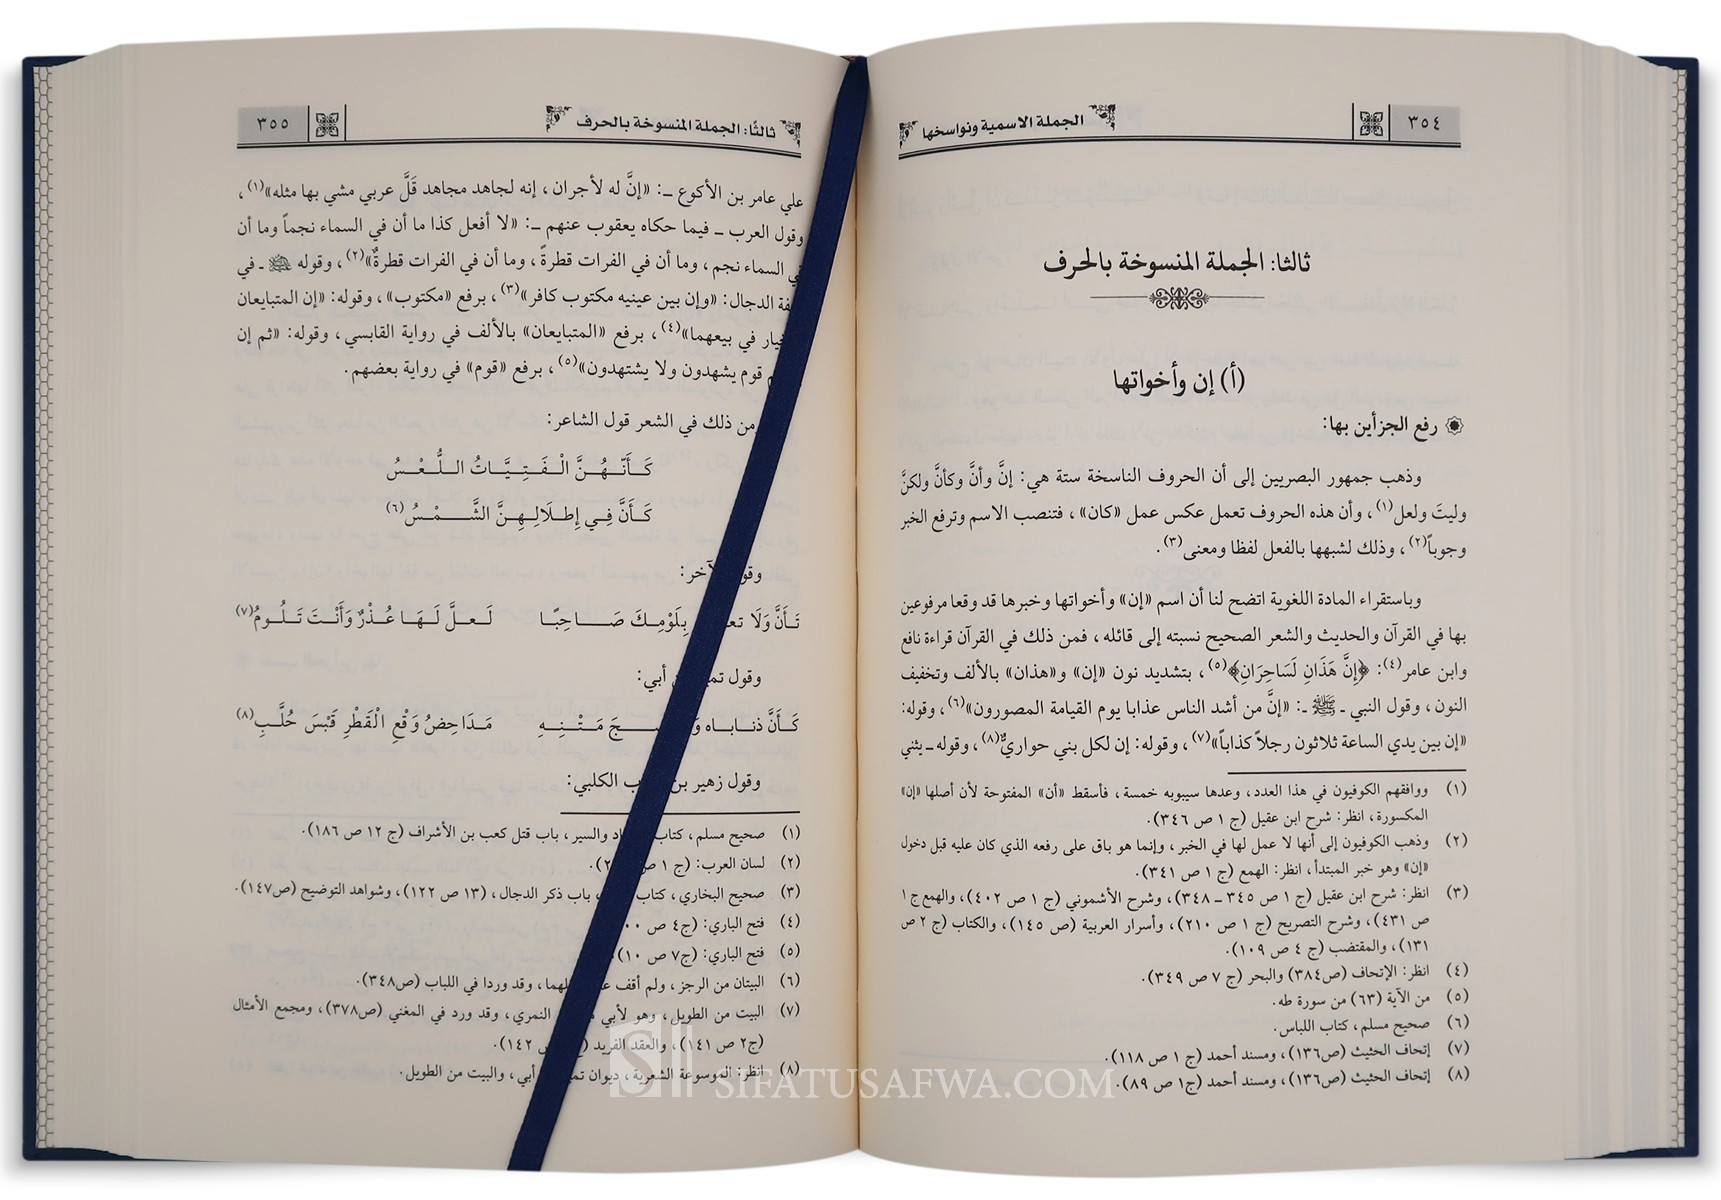 ٣٥٤
الجملة الاسمية ونواسخها
ثالثا: الجملة المنسوخة بالحرف
(أ) إن وأخواتها
رفع الجزأين بها:
وذهب جمهور البصريين إلى أن الحروف الناسخة ستة هي: إنَّ وأنَّ وكأنَّ ولكنَّ
وليتَ ولعل(١)، وأن هذه الحروف تعمل عكس عمل «كان»، فتنصب الاسم وترفع الخبر
وجوباً(٢)، وذلك لشبهها بالفعل لفظا ومعنى(٣).
وباستقراء المادة اللغوية اتضح لنا أن اسم «إن» وأخواتها وخبرها قد وقعا مرفوعين
بها في القرآن والحديث والشعر الصحيح نسبته إلى قائله، فمن ذلك في القرآن قراءة نافع
وابن عامر(٤): ﴿إِنَّ هَذَانِ لَسَاحِرَانِ﴾(٥)، بتشديد نون «إن» و«هذان» بالألف وتخفيف
النون، وقول النبي ـ ﷺ ـ: «إنَّ من أشد الناس عذابا يوم القيامة المصورون»(٦)، وقوله:
«إن بين يدي الساعة ثلاثون رجلاً كذاباً»(٧)، وقوله: إن لكل بني حواريٌّ(٨)، وقوله ـ يثني
(١) ووافقهم الكوفيون في هذا العدد، وعدها سيبويه خمسة، فأسقط «أن» المفتوحة لأن أصلها «إن»
المكسورة، انظر: شرح ابن عقيل (ج ١ ص ٣٤٦).
(٢) وذهب الكوفيون إلى أنها لا عمل لها في الخبر، وإنما هو باق على رفعه الذي كان عليه قبل دخول
«إن» وهو خبر المبتدأ، انظر: الهمع (ج ١ ص ٣٤١).
(٣) انظر: شرح ابن عقيل (ج ١ ص ٣٤٥ ـ ٣٤٨)، وشرح الأشموني (ج ١ ص ٤٠٢)، والهمع ج ١
ص ٤٣١)، وشرح التصريح (ج ١ ص ٢١٠)، وأسرار العربية (ص ١٤٥)، والكتاب (ج ٢ ص
١٣١)، والمقتضب (ج ٤ ص ١٠٩).
(٤) انظر: الإتحاف (ص٣٨٤) والبحر (ج ٧ ص ٣٤٩).
(٥) من الآية (٦٣) من سورة طه.
(٦) صحيح مسلم، كتاب اللباس.
(٧) إتحاف الحثيث (ص١٣٦)، ومسند أحمد (ج ١ ص ١١٨).
(٨) إتحاف الحثيث (ص١٣٦)، ومسند أحمد (ج١ ص ٨٩).
ثالثًا: الجملة المنسوخة بالحرف
٣٥٥
علي عامر بن الأكوع ـ: «إنَّ له لأجران، إنه لجاهد مجاهد قَلَّ عربي مشي بها مثله»(١)،
وقول العرب ـ فيما حكاه يعقوب عنهم ـ: «لا أفعل كذا ما أن في السماء نجماً وما أن
في السماء نجم، وما أن في الفرات قطرةً، وما أن في الفرات قطرةٌ»(٢)، وقوله ﷺ ـ في
الدجال: «وإن بين عينيه مكتوب كافر»(٣)، برفع «مكتوب»، وقوله: «إن المتبايعان
في بيعهما»(٤)، برفع «المتبايعان» بالألف في رواية القابسي، وقوله: «ثم إن
قوم يشهدون ولا يشتهدون»(٥)، برفع «قوم» في رواية بعضهم.
من ذلك في الشعر قول الشاعر:
كَأَنَّهُنَّ الْفَتِيَّاتُ اللُّعْسُ
كَأَنَّ فِي إِطْلَالِهِنَّ الشَّمْسُ(٦)
وقول الآخر:
تَأَنَّ وَلَا بِلَوْمِكَ صَاحِبًا لَعلَّ لَهَا عُذْرٌ وَأَنْتَ تَلُومُ(٧)
وقول أبي:
كَأَنَّ ذنابـاه مَتْنِهِ مَدَاحِضُ وَقْعِ الْقَطْرِ قَبْسَ حُلَّبِ(٨)
وقول زهير بن الكلبي:
(١) صحيح مسلم، كتاب والسير، باب قتل كعب بن الأشراف (ج ١٢ ص ١٨٦).
(٢) لسان العرب: (ج ١
(٣) صحيح البخاري، كتاب باب ذكر الدجال، (١٣ ص ١٢٢)، وشواهد التوضيح (ص١٤٧).
(٤) فتح الباري: (ج٤ ص
(٥) فتح الباري: (ج٧ ص ١٠).
(٦) البيتان من الرجز، ولم أقف وقد وردا في اللباب (ص٣٤٨).
(٧) البيت من الطويل، وهو لأبي النمري، وقد ورد في المغني (ص٣٧٨)، ومجمع الأمثال
(ج٢ ص ١٤١)، والعقد الفريد ص ١٤٢).
(٨) انظر: الموسوعة الشعرية، ديوان أبي، والبيت من الطويل.
SIFATUSAFWA.COM